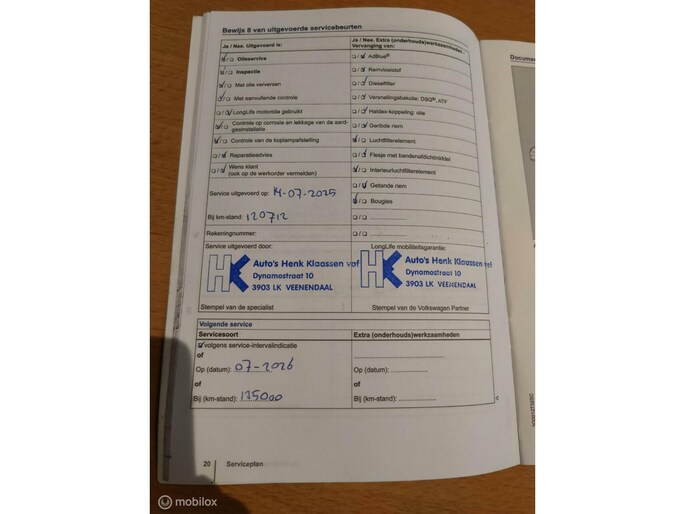 Bewijs 8 van uitgevoerde servicebeurten
Ja / Nee. Uitgevoerd is:
Ja / Nee. Extra (onderhouds)werkzaamheden
Vervanging van:
Olieservice
AdBlue®
Inspectie
Remvloeistof
Met olie verversen
Dieselfilter
Met aanvullende controle
Versnellingsbakolie: DSG®, ATF
LongLife motorolie gebruikt
Haldex-koppeling: olie
Controle op corrosie en lekkage van de aard-
gasinstallatie
Geribde riem
Controle van de koplampafstelling
Luchtfilterelement
Reparatieadvies
Flesje met bandenafdichtmiddel
Wens klant
(ook op de werkorder vermelden)
Interieurluchtfilterelement
Getande riem
Service uitgevoerd op: 14-07-2025
Bougies
Bij km-stand: 120712
Rekeningnummer:
Service uitgevoerd door:
LongLife mobiliteitsgarantie:
HK Auto's Henk Klaassen vof
Dynamostraat 10
3903 LK VEENENDAAL
HK Auto's Henk Klaassen vof
Dynamostraat 10
3903 LK VEENENDAAL
Stempel van de specialist
Stempel van de Volkswagen Partner
Volgende service
Servicesoort
Extra (onderhouds)werkzaamheden
volgens service-intervalindicatie
of
Op (datum): 07-2026
Op (datum):
of
of
Bij (km-stand): 135000
Bij (km-stand):
20 Serviceplan
Documen
mobilox